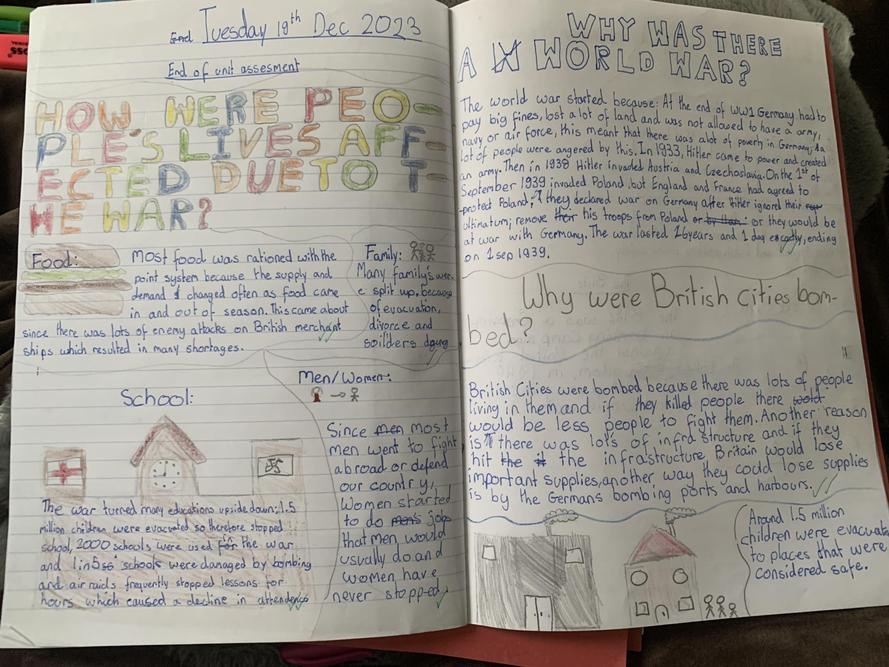 End Tuesday 19th Dec 2023
End of unit assesment
HOW WERE PEO-
PLE'S LIVES AFF-
ECTED DUE TO T-
HE WAR?
Food:
Most food was rationed with the
point system because the supply and
demand changed often as food came
in and out of season. This came about
since there was lots of enemy attacks on British merchant
ships which resulted in many shortages.
Family:
Many family's wer-
e split up, because
of evacuation,
divorce and
soilders dying
School:
The war turned many educations upside down; 1.5
million children were evacuated so therefore stopped
school, 2000 schools were used for the war
and 1 in 5 schools were damaged by bombing
and air raids frequently stopped lessons for
hours which caused a decline in attendence
Men/Women:
Since men most
men went to fight
abroad or defend
our country,
Women started
to do men's jobs
that men would
usually do and
women have
never stopped.
WHY WAS THERE
A WORLD WAR?
The world war started because: At the end of WW1 Germany had to
pay big fines, lost a lot of land and was not allowed to have a army,
navy or air force, this meant that there was alot of poverty in Germany; a
lot of people were angered by this. In 1933, Hitler came to power and created
an army. Then in 1938 Hitler invaded Austria and Czechoslavia. On the 1st of
September 1939 invaded Poland, but England and France had agreed to
protect Poland, they declared war on Germany after Hitler ignored their
ultimatum; remove their his troops from Poland or or they would be
at war with Germany. The war lasted 6 years and 1 day exactly, ending
on 1 sep 1939.
Why were British cities bom-
bed?
British Cities were bombed because there was lots of people
living in them and if they killed people there
would be less people to fight them. Another reason
is there was lots of infra structure and if they
hit the the infrastructure Britain would lose
important supplies, another way they could lose supplies
is by the Germans bombing ports and harbours.
Around 1.5 million
children were evacuated
to places that were
considered safe.